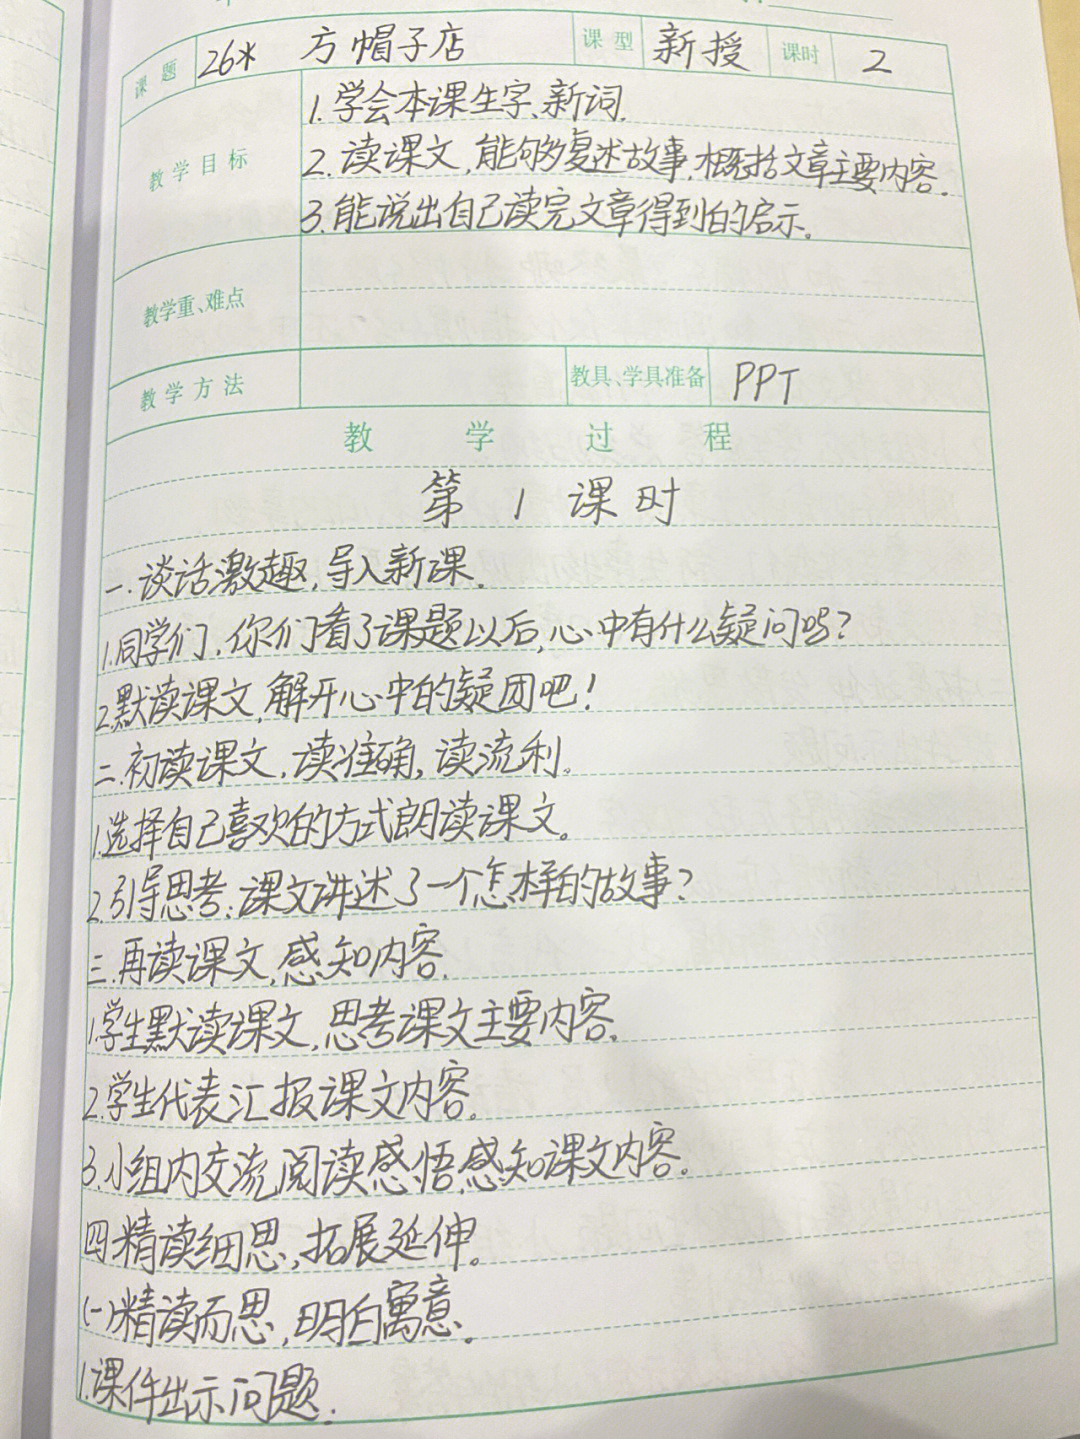 课题 26* 方帽子店 课型 新授 课时 2
教学目标
1.学会本课生字、新词.
2.读课文,能够复述故事,概括文章主要内容.
3.能说出自己读完文章得到的启示。
教学重、难点
教学方法 教具、学具准备 PPT
教学过程
第1课时
一.谈话激趣,导入新课.
1.同学们,你们看了课题以后,心中有什么疑问吗?
2.默读课文,解开心中的疑团吧!
二.初读课文,读准确,读流利。
1.选择自己喜欢的方式朗读课文。
2.引导思考:课文讲述了一个怎样的故事?
三.再读课文,感知内容.
1.学生默读课文,思考课文主要内容.
2.学生代表汇报课文内容.
3.小组内交流阅读感悟,感知课文内容.
四.精读细思,拓展延伸。
(一)精读而思,明白寓意.
1.课件出示问题.